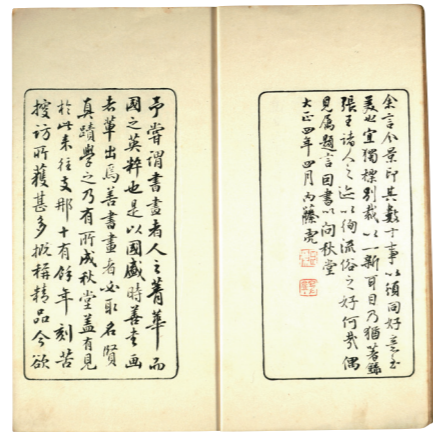 余言今景印其數十事以頒同好意至
美也宜獨標別裁以一新耳目乃猶著錄
張王諸人之迹以徇流俗之好何哉偶
見属題言因書以问秋堂
大正四年四月内藤虎
予嘗謂書畫者人之菁華而
國之英粹也是以國盛時善書画
者輩出焉善書畫者必取名賢
真蹟學之乃有所成秋堂蓋有見
於此来往支那十有餘年刻苦
搜访所獲甚多概稱精品今欲